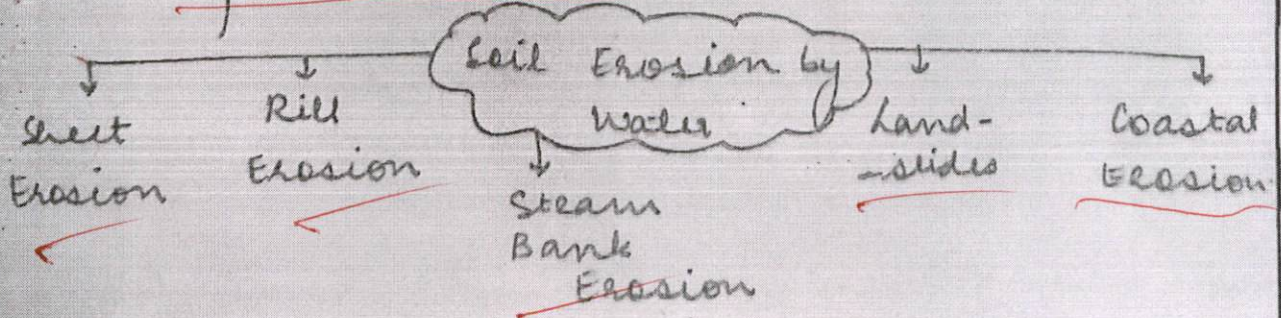 Soil Erosion by
Water
Sheet
Erosion
Rill
Erosion
Steam
Bank
Erosion
Land-
-slides
Coastal
Erosion